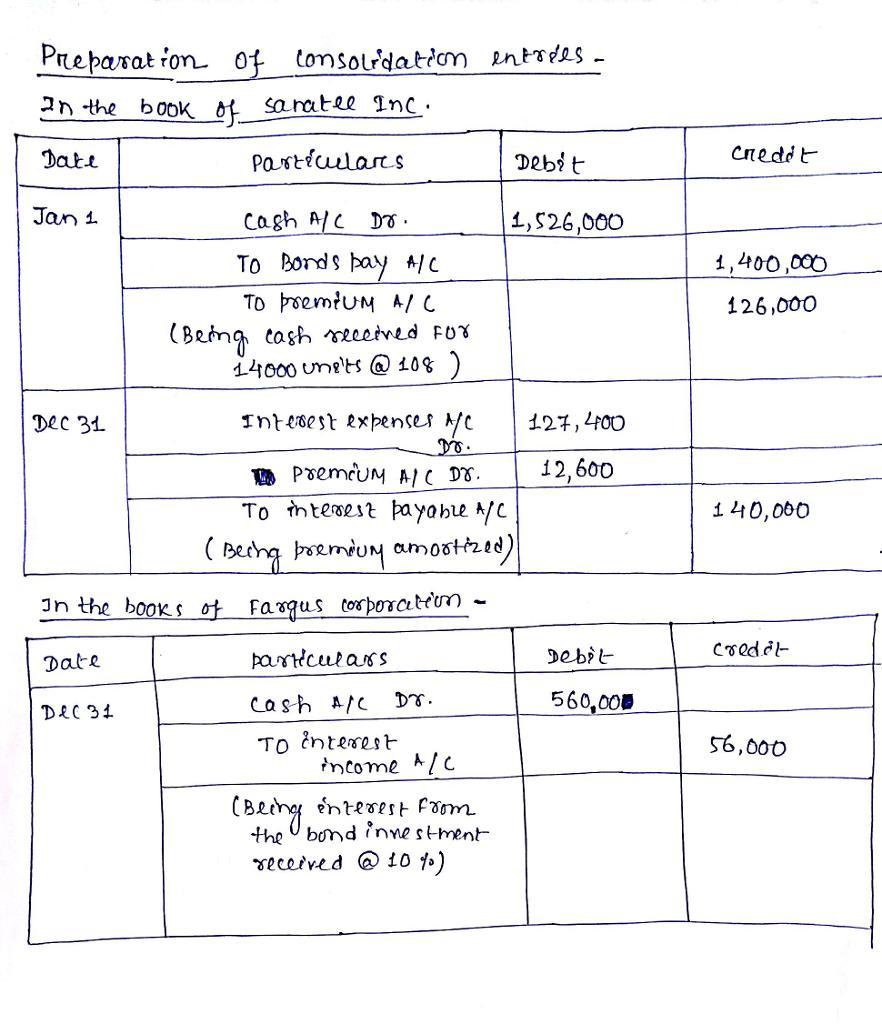 Preparation of consolidation entries -
In the book of saratee Inc.
Date Particulars Debit credit
Jan 1 Cash A/C Dr. 1,526,000
To Bonds pay A/C 1,400,000
To premium A/C 126,000
(Being cash received For
14000 units @ 108 )
Dec 31 Interest expenses A/C 127,400
Dr.
Premium A/C Dr. 12,600
To interest payable A/C 140,000
(Being premium amortized)
In the books of Fargus corporation -
Date particulars Debit credit
Dec 31 Cash A/C Dr. 560,000
To interest 56,000
income A/C
(Being interest from
the bond investment
received @ 10 %)